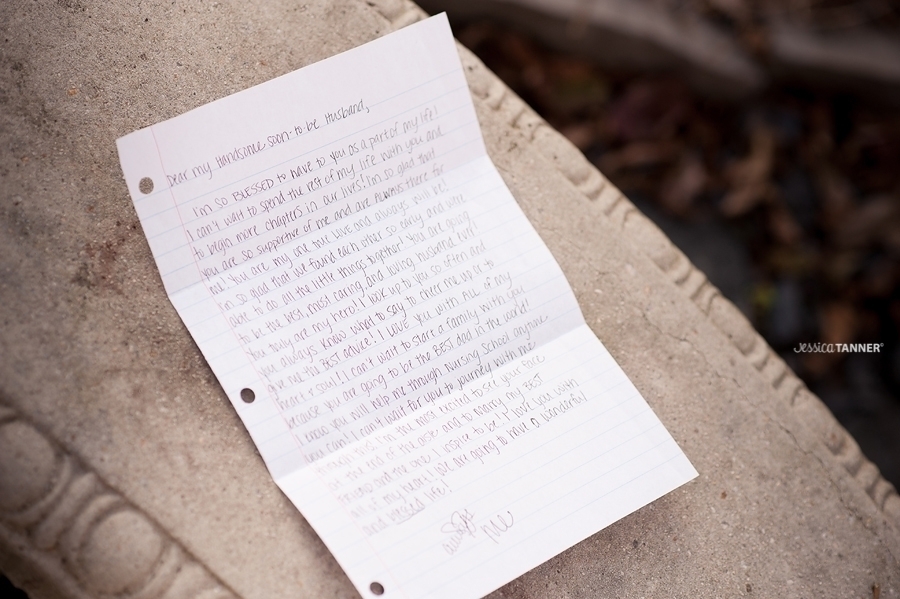 Dear my Handsome soon-to-be Husband,
I'm so BLESSED to have to you as a part of my life!
I can't wait to spend the rest of my life with you and
to begin more chapters in our lives! I'm so glad that
you are so supportive of me and are ALWAYS there for
me! You are my one true love and always will be!
I'm so glad that we found each other so early and were
able to do all the little things together! You are going
to be the best, most caring, and loving husband ever!
You truly are my hero! I look up to you so often and
you always know what to say to cheer me up or to
give me the BEST advice! I LOVE YOU WITH ALL of my
heart & soul! I can't wait to start a family with you
because you are going to be the BEST dad in the world!
I know you will help me through Nursing School anytime
you can! I can't wait for you to journey with me
through this! I'm the most excited to see your face
at the end of the aisle and to marry my BEST
friend and the one I inspire to be! I love you with
all of my heart! We are going to have a wonderful
and blessed life!
me
Jessica TANNER®